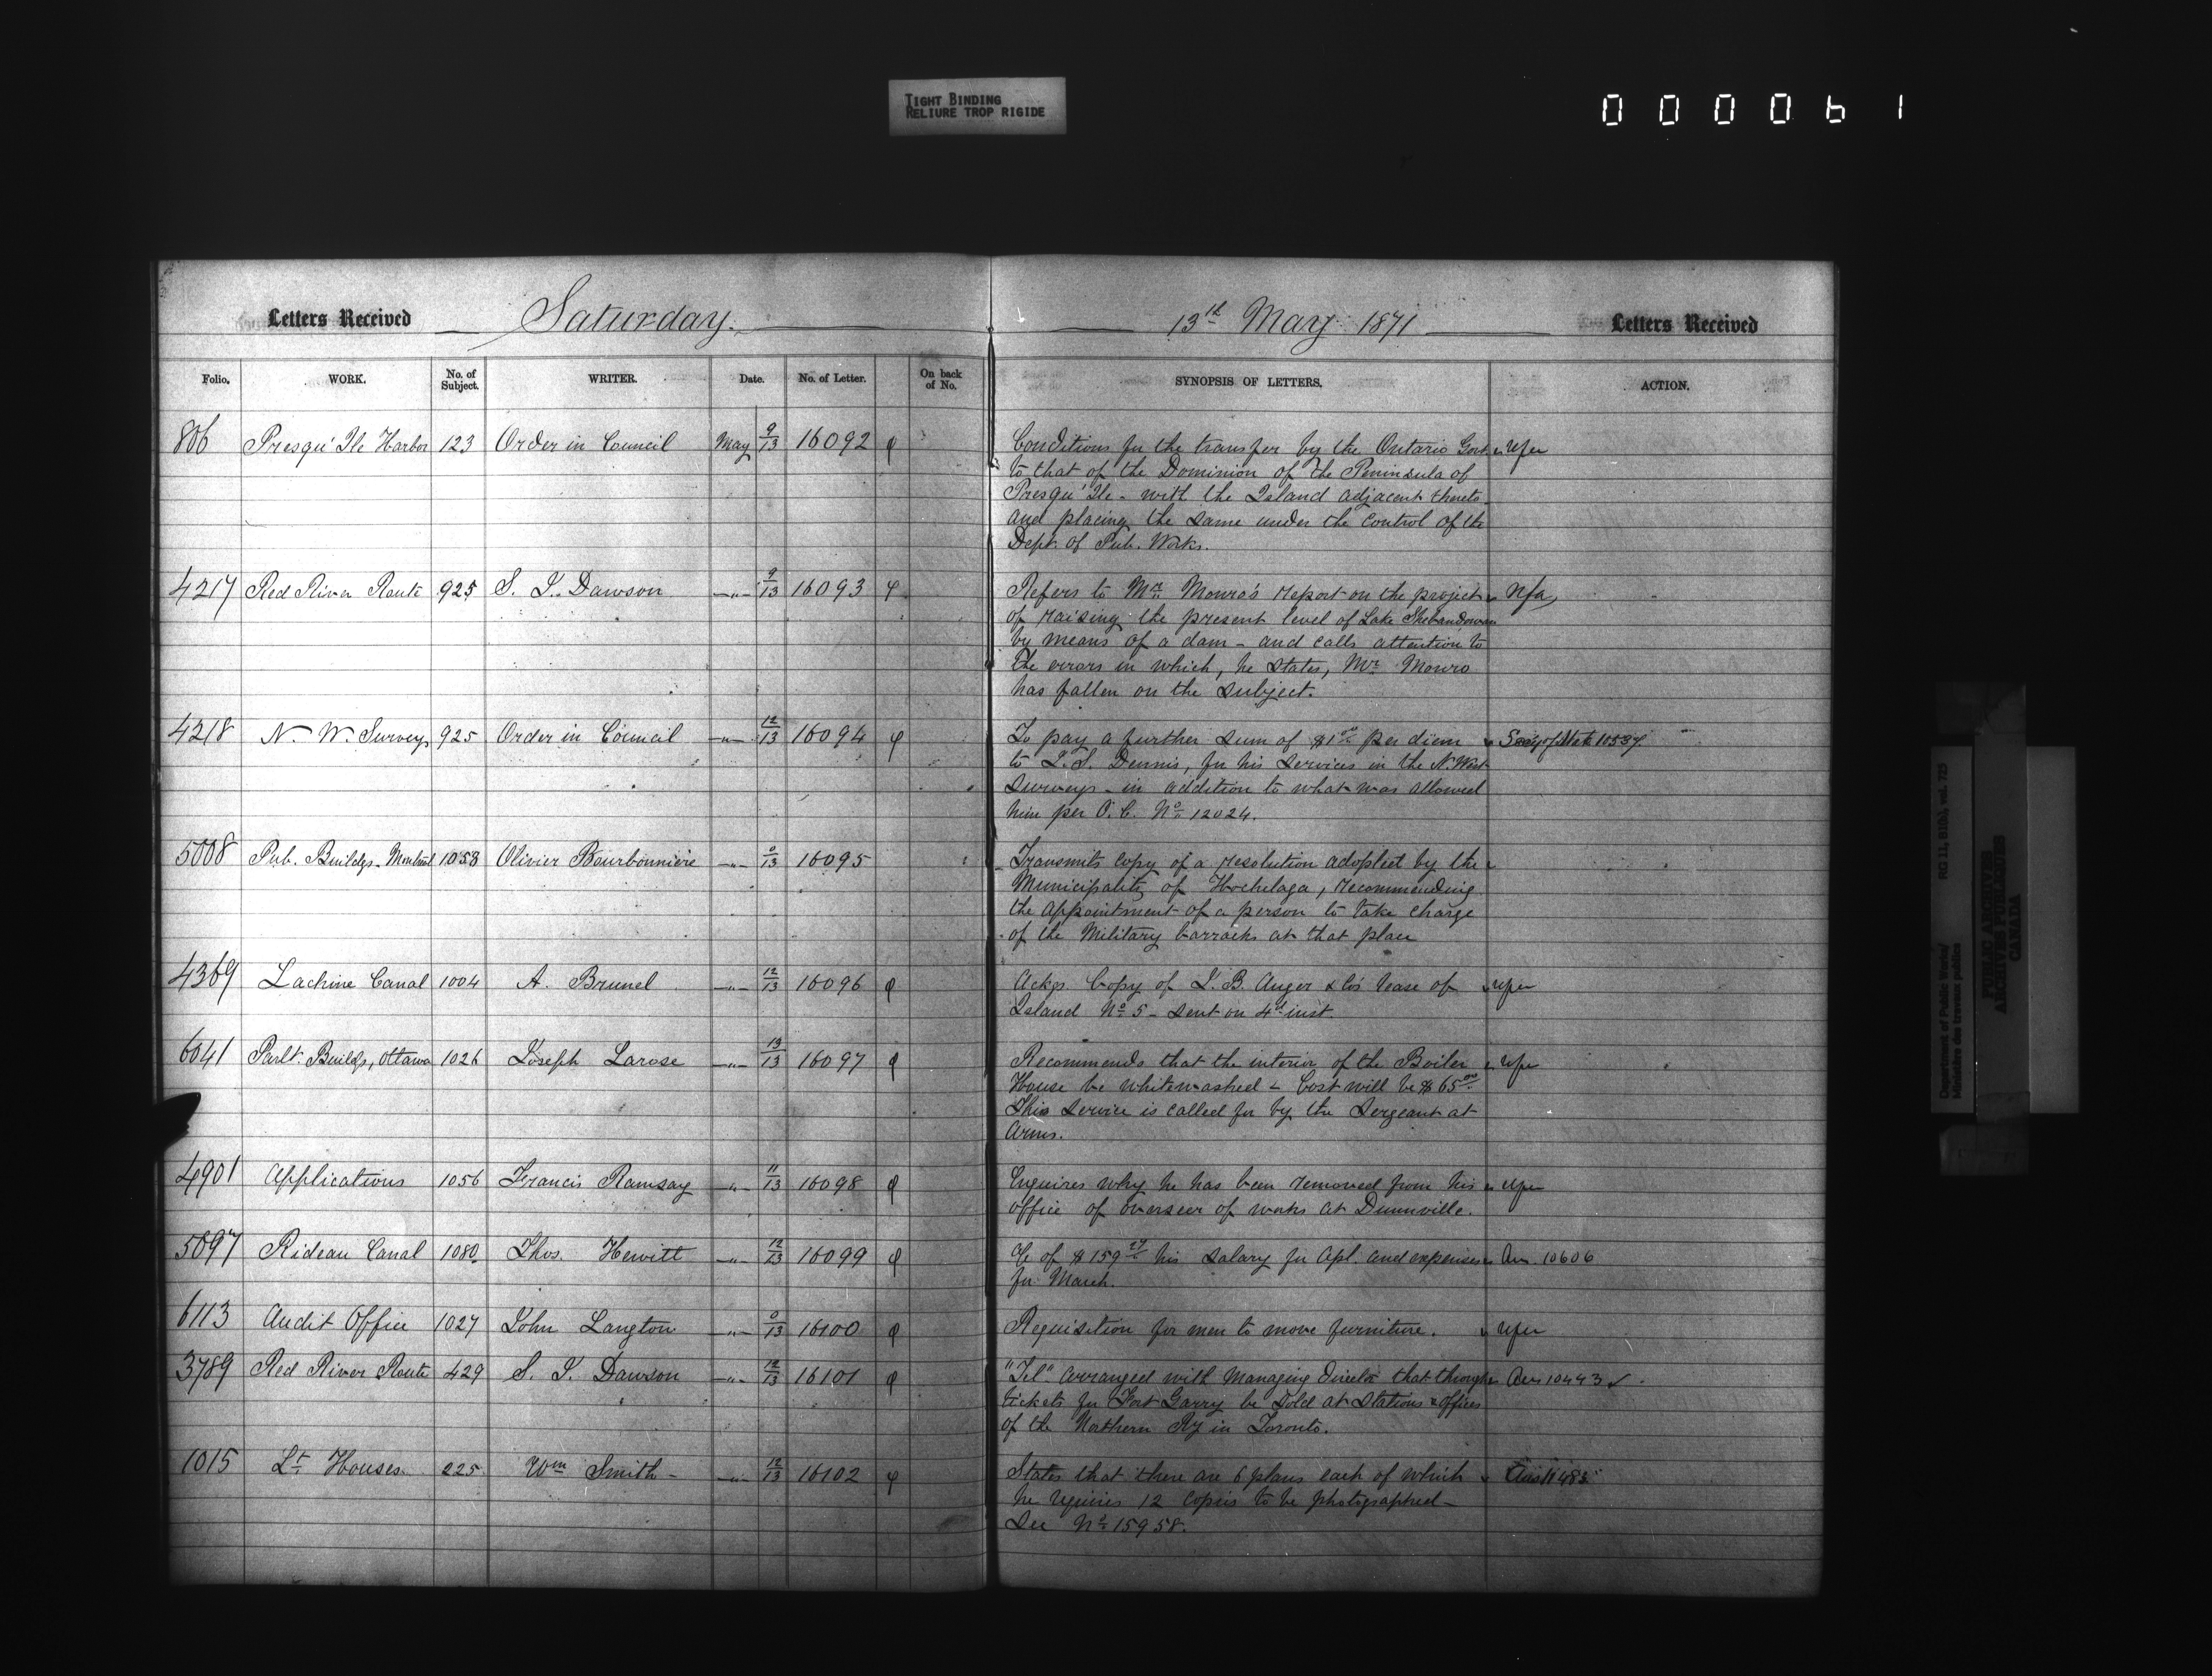 TIGHT BINDING
RELIURE TROP RIGIDE
000061
Letters Received Saturday. 13th May 1871 Letters Received
Folio. WORK. No. of Subject. WRITER. Date. No. of Letter. On back of No. SYNOPSIS OF LETTERS. ACTION.
806 Presqu' Ile Harbor 123 Order in Council May 9/13 16092 Conditions for the transfer by the Ontario Govt
to that of the Dominion of the Peninsula of
Presqu' Ile - with the Island adjacent thereto
and placing the same under the control of the
Dept. of Pub. Works.
4217 Red River Route 925 S. J. Dawson -"- 9/13 16093 Refers to Mr. Monro's report on the project Nfa
of raising the present level of Lake Shebandowan
by means of a dam - and calls attention to
the errors in which, he states, Mr. Monro
has fallen on the subject.
4218 N. W. Surveys 925 Order in Council -"- 12/13 16094 To pay a further sum of $1.00 per diem Secy of State 10537
to J. S. Dennis, for his services in the N. West
Surveys - in addition to what was allowed
him per O. C. No. 12024.
5008 Pub. Buildgs - Montreal 1053 Olivier Bourbonniere -"- 0/13 16095 Transmits copy of a resolution adopted by the
Municipality of Hochelaga, recommending
the appointment of a person to take charge
of the Military barracks at that place
4369 Lachine Canal 1004 A. Brunel -"- 12/13 16096 Ackgs. Copy of J. B. Auger & Co's lease of
Island No. 5 - sent on 4th inst.
6041 Parlt. Buildgs, Ottawa 1026 Joseph Larose -"- 13/13 16097 Recommends that the interior of the Boiler
House be whitewashed - Cost will be $65.00
This service is called for by the Sergeant at
Arms.
4901 Applications 1056 Francis Ramsay -"- 11/13 16098 Enquires why he has been removed from his
office of overseer of works at Dunnville.
5097 Rideau Canal 1080 Thos. Hewitt -"- 12/13 16099 of $159 his salary for Apl. and expenses Ans. 10606
for March.
6113 Audit Office 1027 John Langton -"- 0/13 16100 Requisition for men to move furniture.
3789 Red River Route 429 S. J. Dawson -"- 12/13 16101 "Tel" Arranged with Managing Director that through Ans 10443
tickets for Fort Garry be sold at Stations & offices
of the Northern Ry in Toronto.
1015 Lt. Houses 225 Wm Smith - -"- 12/13 16102 States that there are 6 plans each of which
he requires 12 copies to be photographed -
See No. 15958.
Department of Public Works/ RG 11, B1(b), vol. 725
Ministère des travaux publics
PUBLIC ARCHIVES
ARCHIVES PUBLIQUES
CANADA